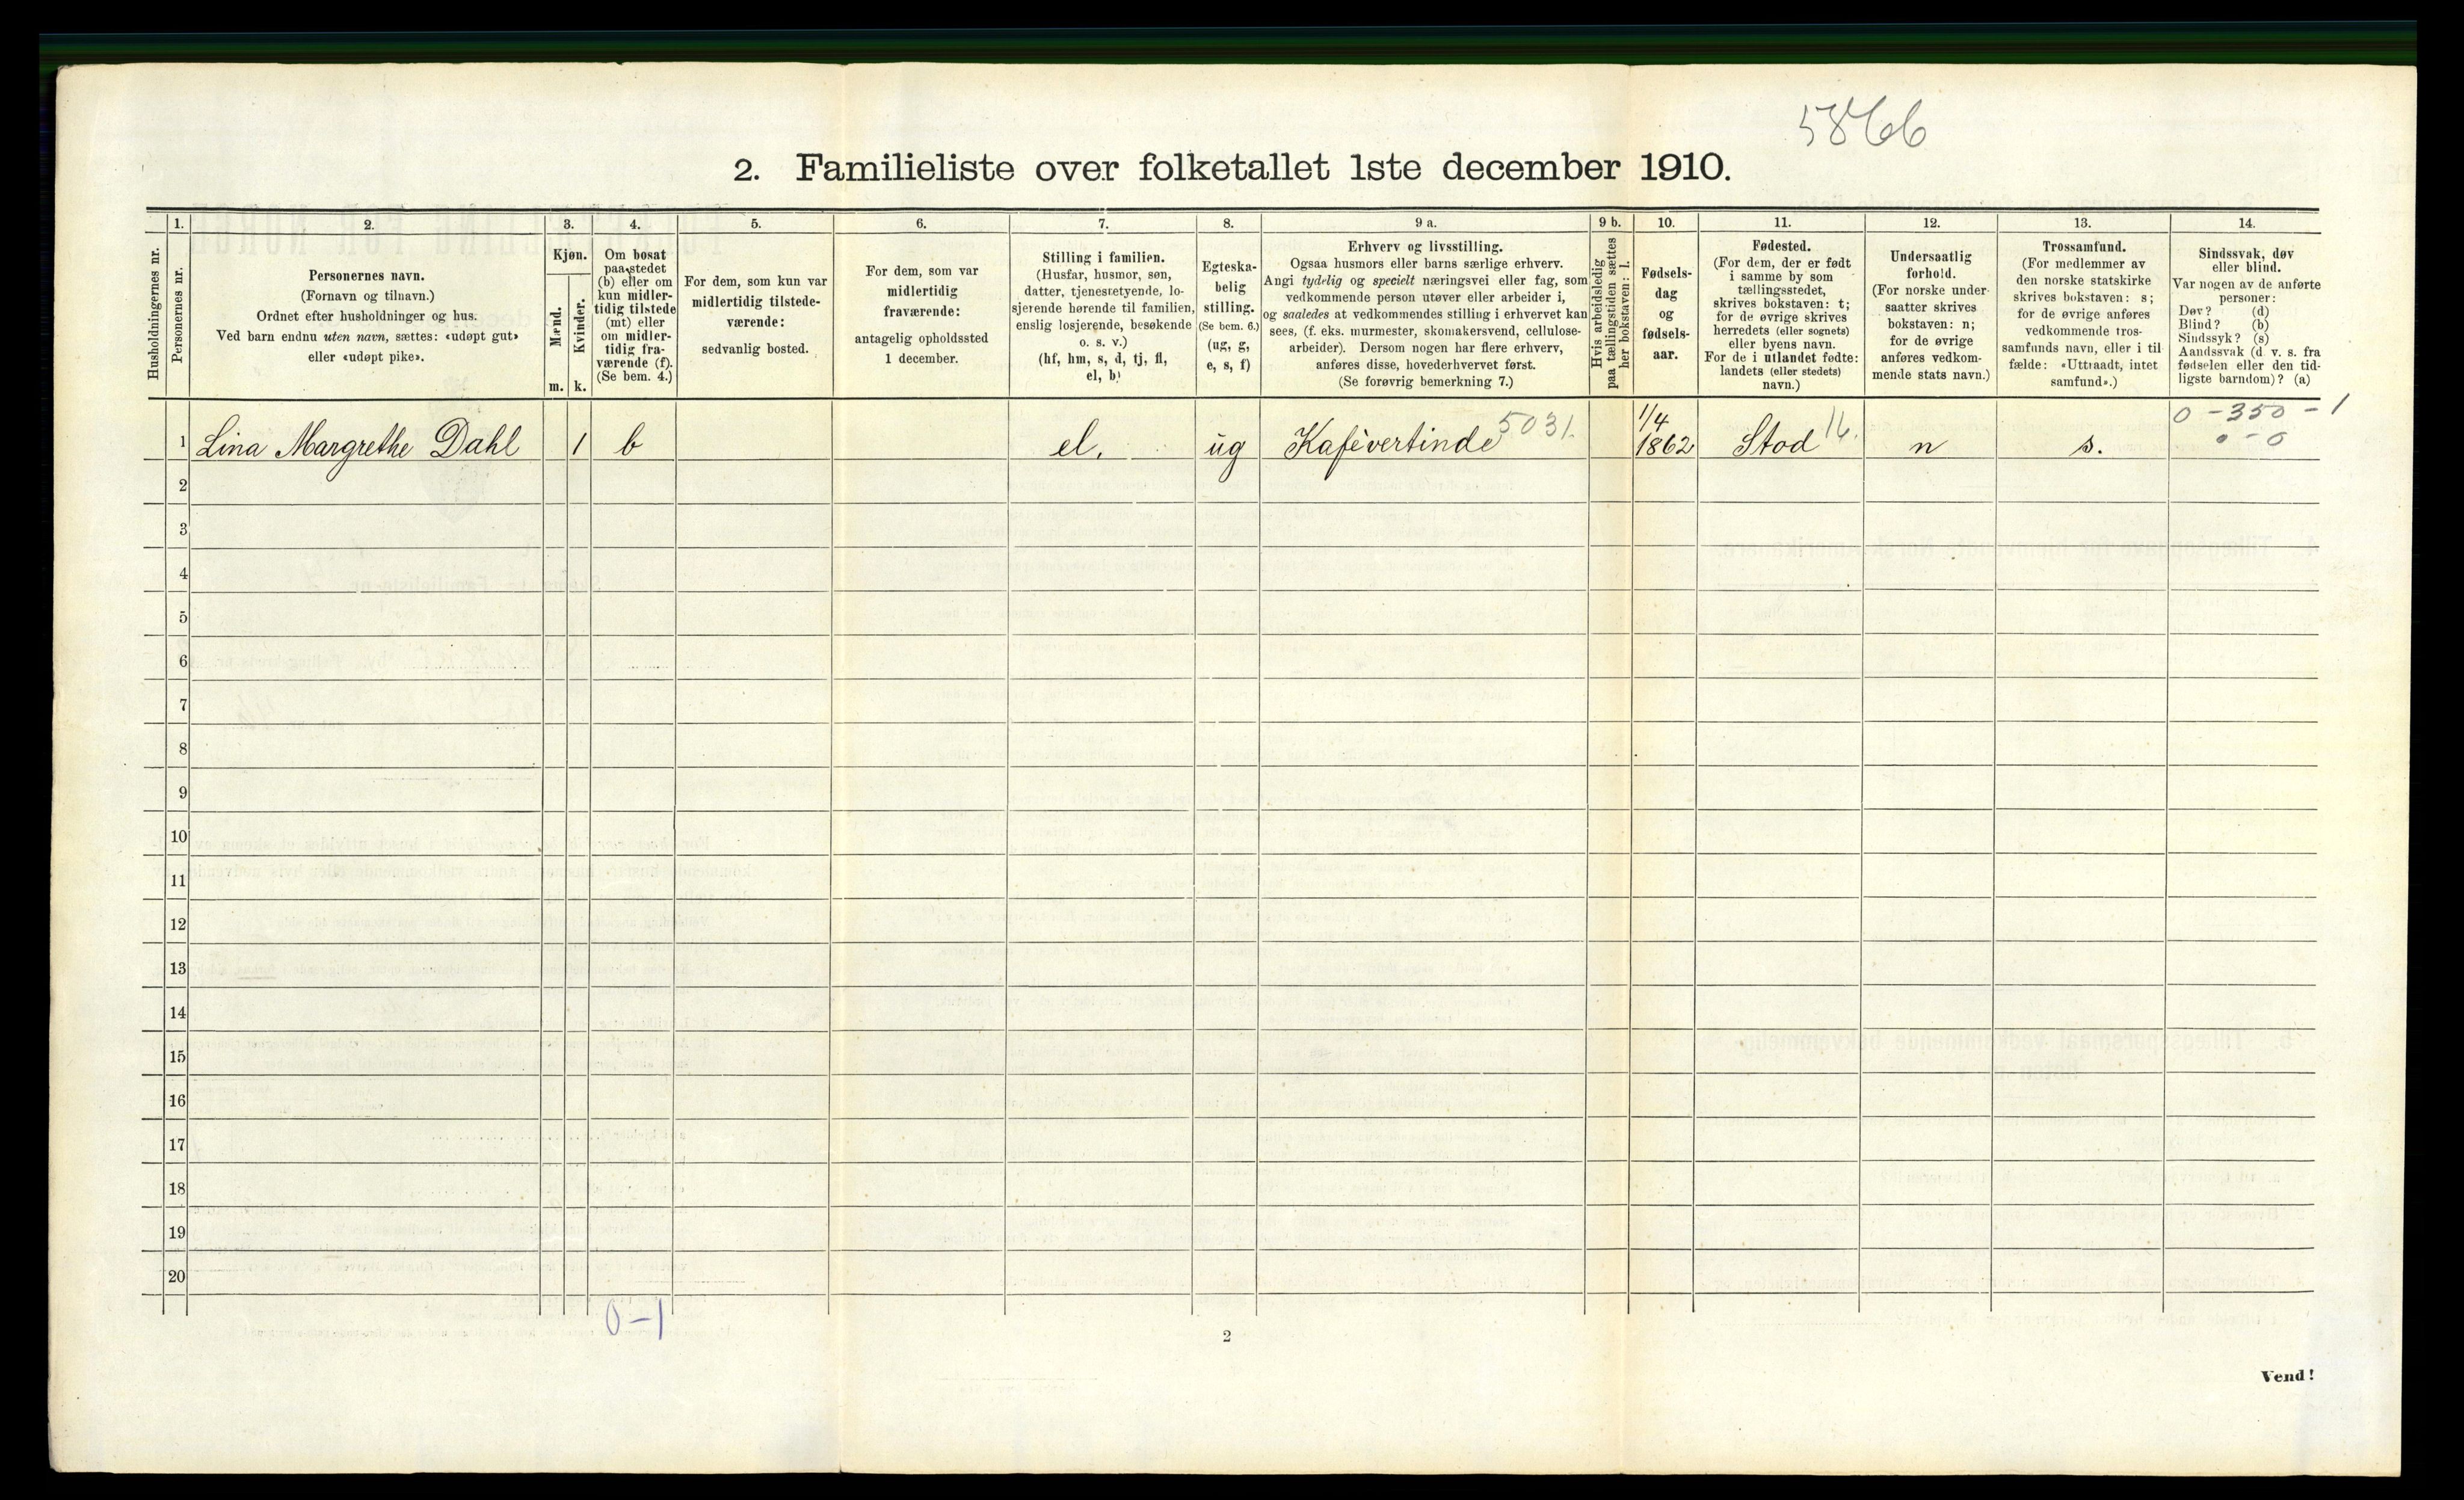 5866
2. Familieliste over folketallet 1ste december 1910.
Husholdningernes nr.
1.
Personernes nr.
2.
Personernes navn.
(Fornavn og tilnavn.)
Ordnet efter husholdninger og hus.
Ved barn endnu uten navn, sættes: «udøpt gut»
eller «udøpt pike».
3.
Kjøn.
Mænd.
Kvinder.
m.
k.
4.
Om bosat
paa stedet
(b) eller om
kun midler-
tidig tilstede
(mt) eller
om midler-
tidig fra-
værende (f).
(Se bem. 4.)
5.
For dem, som kun var
midlertidig tilstede-
værende:
sedvanlig bosted.
6.
For dem, som var
midlertidig
fraværende:
antagelig opholdssted
1 december.
7.
Stilling i familien.
(Husfar, husmor, søn,
datter, tjenestetyende, lo-
sjerende hørende til familien,
enslig losjerende, besøkende
o. s. v.)
(hf, hm, s, d, tj, fl,
el, b)
8.
Egteska-
belig
stilling.
(Se bem. 6.)
(ug, g,
e, s, f)
9 a.
Erhverv og livsstilling.
Ogsaa husmors eller barns særlige erhverv.
Angi tydelig og specielt næringsvei eller fag, som
vedkommende person utøver eller arbeider i,
og saaledes at vedkommendes stilling i erhvervet kan
sees, (f. eks. murmester, skomakersvend, cellulose-
arbeider). Dersom nogen har flere erhverv,
anføres disse, hovederhvervet først.
(Se forøvrig bemerkning 7.)
9 b.
Hvis arbeidsledig
paa tællingstiden sættes
her bokstaven: l.
10.
Fødsels-
dag
og
fødsels-
aar.
11.
Fødested.
(For dem, der er født
i samme by som
tællingsstedet,
skrives bokstaven: t;
for de øvrige skrives
herredets (eller sognets)
eller byens navn.
For de i utlandet fødte:
landets (eller stedets)
navn.)
12.
Undersaatlig
forhold.
(For norske under-
saatter skrives
bokstaven: n;
for de øvrige
anføres vedkom-
mende stats navn.)
13.
Trossamfund.
(For medlemmer av
den norske statskirke
skrives bokstaven: s;
for de øvrige anføres
vedkommende tros-
samfunds navn, eller i til-
fælde: «Uttraadt, intet
samfund».)
14.
Sindssvak, døv
eller blind.
Var nogen av de anførte
personer:
Døv? (d)
Blind? (b)
Sindssyk? (s)
Aandssvak (d. v. s. fra
fødselen eller den tid-
ligste barndom)? (a)
1 Lina Margrethe Dahl 1 b el. ug Kafévertinde 5031. 1/4 1862 Stod 16. n s. 0-350-1
0-0
2
3
4
5
6
7
8
9
10
11
12
13
14
15
16
17
18
19
20
0-1
2
Vend!